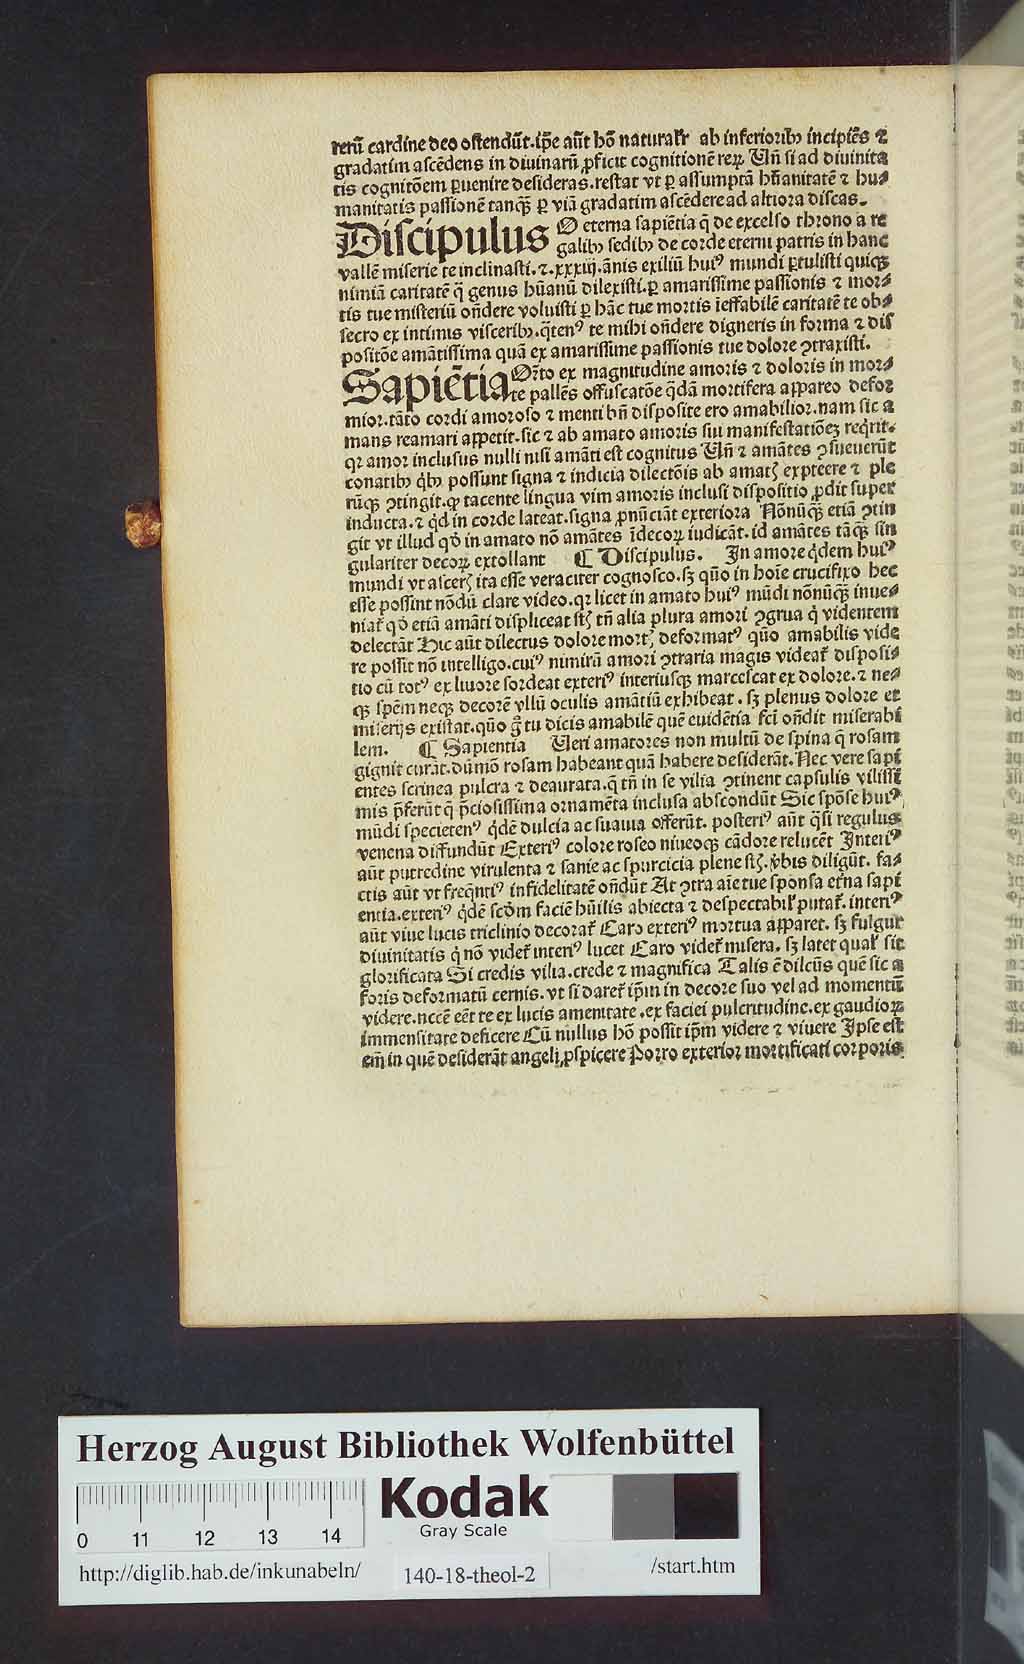 rerū cardine deo ostendūt.ip̄e aūt hō naturalr̄ ab inferiorib⁹ incipiēs ⁊
gradatim ascēdens in diuinarū ꝓficit cognitionē reꝝ Vn̄ si ad diuinita
tis cognitōem ꝑuenire desideras.restat vt ꝑ assumptā hūanitatē ⁊ hu⸗
manitatis passionē tanqꝫ ꝑ viā gradatim ascēdere ad altiora discas.
Discipulus O eterna sapiētia q̄ de excelso throno a re
galibꝫ sedibꝫ de corde eterni patris in hanc
vallē miserie te inclinasti.⁊.xxxiij.ānis exiliū huiꝰ mundi ꝑtulisti quiqꝫ
nimiā caritatē q̄ genus hūanū dilexisti.ꝑ amarissime passionis ⁊ mor⸗
tis tue misteriū on̄dere voluisti ꝑ hāc tue mortis īeffabilē caritatē te ob⸗
secro ex intimis visceribꝫ.q̄tenꝰ te mihi on̄dere digneris in forma ⁊ dis
positōe amātissima quā ex amarissime passionis tue dolore ꝯtraxisti.
Sapiētia Q̄to ex magnitudine amoris ⁊ doloris in mor⸗
te pallēs offuscatōe q̄dā mortifera appareo defor
mior.tāto cordi amoroso ⁊ menti bn̄ disposite ero amabilior.nam sic a
mans reamari appetit.sic ⁊ ab amato amoris sui manifestatiōeꝫ reqͥrit.
qꝛ amor inclusus nulli nisi amāti est cognitus Vn̄ ⁊ amātes ꝯsueuerūt
conatibꝫ qͥbꝫ possunt signa ⁊ indicia dilectōis ab amatꝭ expetere ⁊ ple
rūqꝫ ꝯtingit.ꝙ tacente lingua vim amoris inclusi dispositio ꝓdit super
inducta.⁊ qͥd in corde lateat.signa ꝓnūciāt exteriora Nōnūqꝫ etiā ꝯtin
git vt illud qď in amato nō amātes īdecoꝝ iudicāt.id amātes tāqꝫ sin
gulariter decoꝝ extollant ¶ Discipulus. In amore qͥdem huiꝰ
mundi vt asserꝭ ita esse veraciter cognosco.sꝫ quō in hoīe crucifixo hec
esse possint nōdū clare video.qꝛ licet in amato huiꝰ mūdi nōnūqꝫ inue⸗
niat᷑ qď etiā amāti displiceat stꝭ tn̄ alia plura amori ꝯgrua q̄ videntem
delectāt Hic aūt dilectus dolore mortꝭ deformatꝰ quō amabilis vide
re possit nō intelligo.cuiꝰ nimirū amori ꝯtraria magis videat᷑ disposi⸗
tio cū totꝰ ex liuore sordeat exteriꝰ interiusqꝫ marcescat ex dolore.⁊ ne⸗
qꝫ spēm neqꝫ decorē vllū oculis amātiū exhibeat.sꝫ plenus dolore et
miserijs existat.quō gͦ tu dicis amabilē quē euidētia fc̄i on̄dit miserabi
lem. ¶ Sapientia Veri amatores non multū de spina q̄ rosam
gignit curāt.dūmō rosam habeant quā habere desiderāt.Nec vere sapi
entes scrinea pulcra ⁊ deaurata.q̄ tn̄ in se vilia ꝯtinent capsulis vilissi
mis p̄ferūt q̄ p̄ciosissima ornamēta inclusa abscondūt Sic spōse huiꝰ
mūdi specietenꝰ qͥdē dulcia ac suauia offerūt. posteriꝰ aūt q̄si regulus
venena diffundūt Exteriꝰ colore roseo niueoqꝫ cādore relucēt Interiꝰ
aūt putredine virulenta ⁊ sanie ac spurcicia plene stꝭ.v̄bis diligūt. fa⸗
ctis aūt vt freq̄ntiꝰ infidelitatē on̄dūt At ꝯtra aīe tue sponsa et̄na sapi
entia.exteriꝰ qͥdē scd̄m faciē hūilis abiecta ⁊ despectabilr̄ putat᷑. interiꝰ
aūt viue lucis triclinio decorat᷑ Caro exteriꝰ mortua apparet. sꝫ fulgur
diuinitatis qͥ nō videt᷑ interiꝰ lucet Caro videt᷑ misera. sꝫ latet qualr̄ sit
glorificata Si credis vilia.crede ⁊ magnifica Talis ē dilc̄us quē sic a
foris deformatū cernis.vt si daret᷑ ip̄m in decore suo vel ad momentū
videre.nccē eēt te ex lucis amenitate.ex faciei pulcritudine.ex gaudioꝝ
immensitate deficere Cū nullus hō possit ip̄m videre ⁊ viuere Ipse est
em̄ in quē desiderāt angeli ꝓspicere Porro exterior mortificati corporis
Herzog August Bibliothek Wolfenbüttel
0 11 12 13 14
Kodak
Gray Scale
http://diglib.hab.de/inkunabeln/ 140-18-theol-2 /start.htm